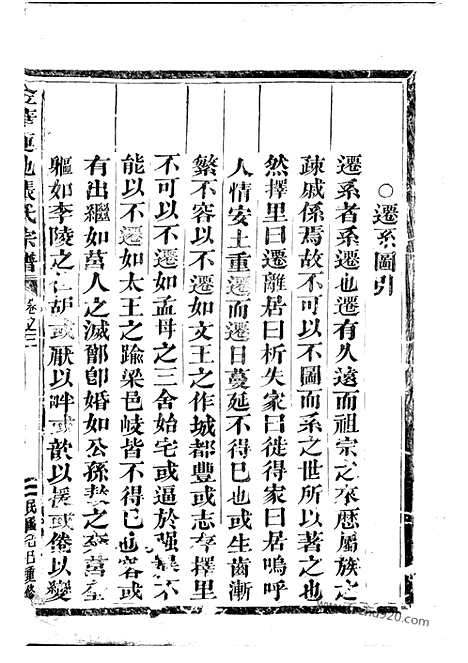 ○遷系圖引
遷系者系遷也遷有久遠而祖宗之來歷屬族之
疎戚係焉故不可以不圖而系之世所以著之也
然擇里曰遷離居曰析失家曰徙得家曰居嗚呼
人情安土重遷而遷日蔓延不得已也或生齒漸
繁不容以不遷如文王之作城都豐或志在擇里
不可以不遷如孟母之三舍始宅或逼於强暴不
能以不遷如太王之踰梁邑岐皆不得已也容或
有出繼如莒人之滅鄫卽婚如公孫敖之奔莒全
軀如李陵之仕胡或厭以畔或歆以援或倦以變
金華蓮池張氏宗譜 卷之三
二 民國 重修